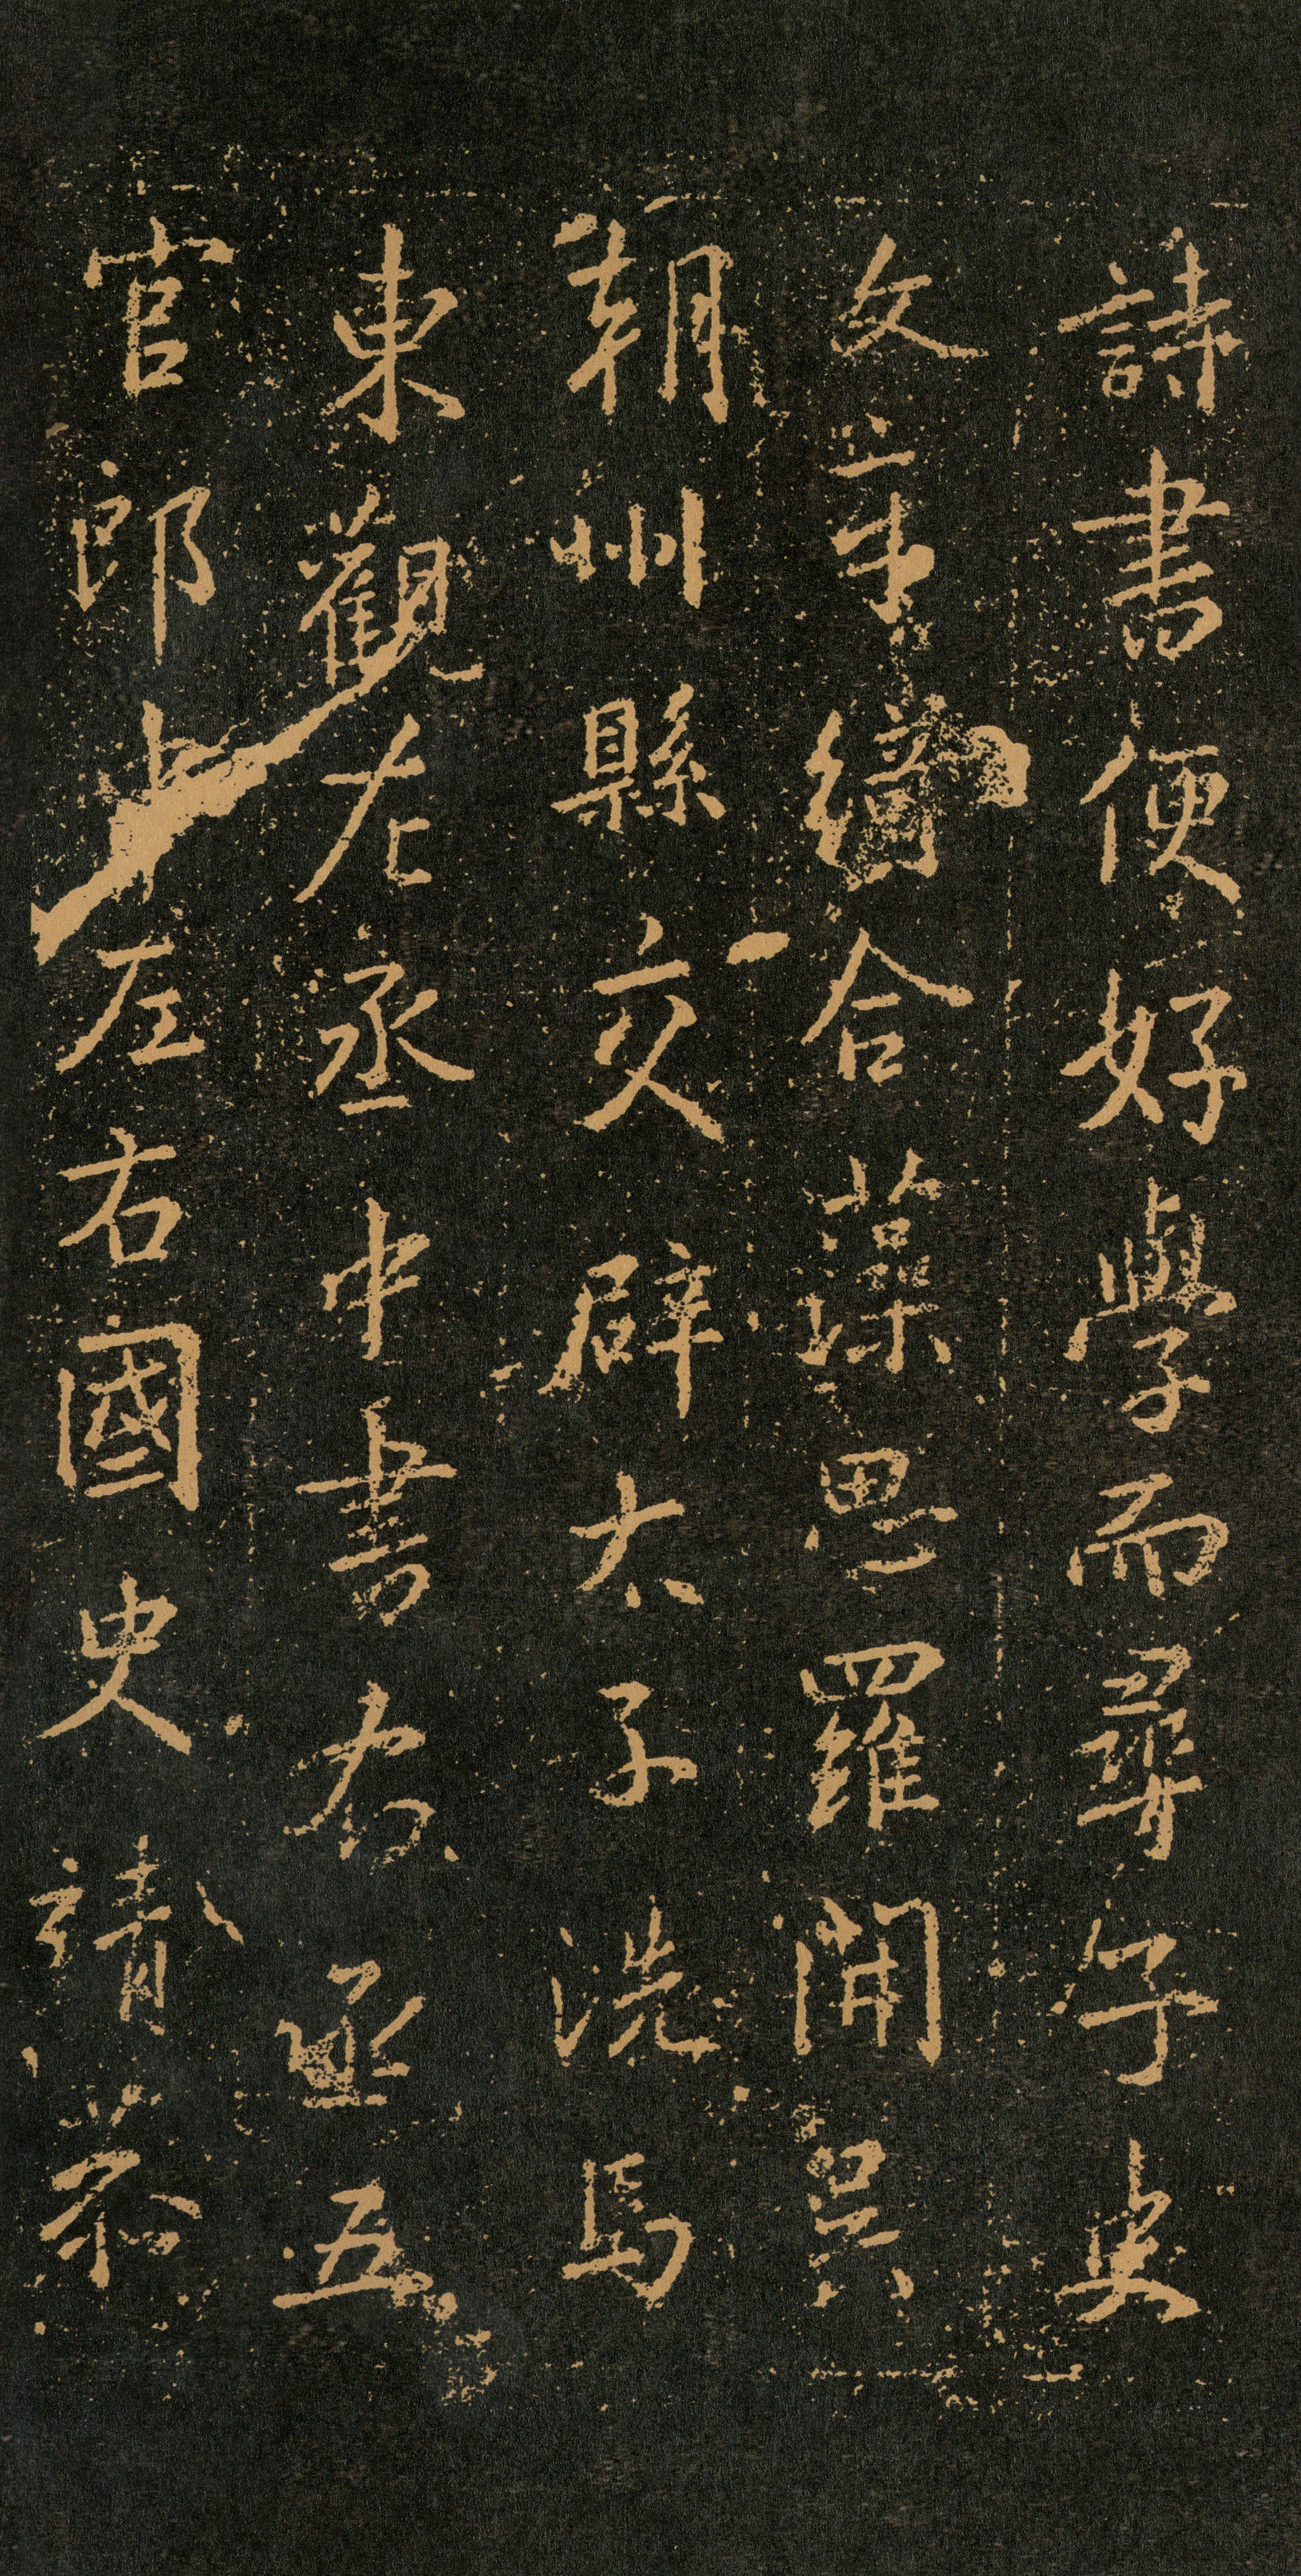 詩書便好學而尋子史
文章綺合藻思羅開吳
朝州縣交辟太子洗馬
東觀左丞中書右丞五
官郎左右國史靖恭